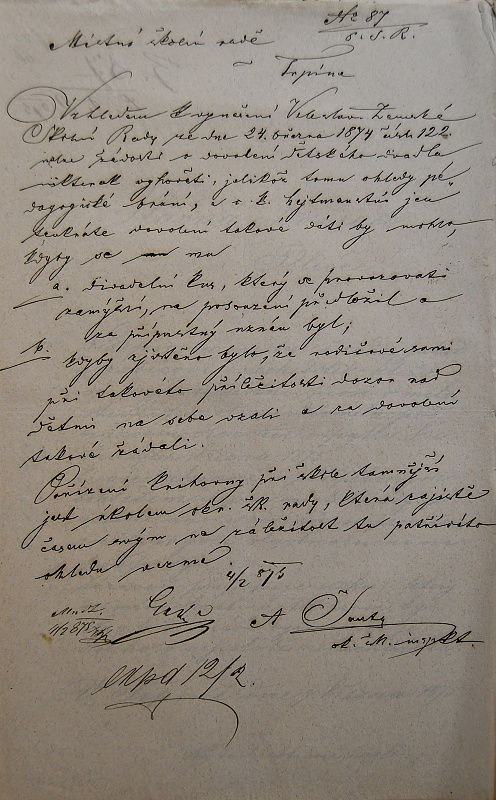 № 87
o. š. R.
Místní školní radě
v Trpíně
Vzhledem k vynešení Veleslav. Zemské
Školní Rady ze dne 24. března 1874 čísl. 122
nelze žádosti o dovolení dětského divadla
nikterak vyhověti, jelikož tomu ohledy pe„
dagogické brání, a c. k. hejtmanství jen
tenkráte dovolení takové dáti by mohlo,
kdyby se mu
a. divadelní kus, který se provozovati
zamýšlí, na posouzení předložil a
za přípustný uznán byl;
b. kdyby zjištěno bylo, že rodičové sami
při takovéto příležitosti dozor nad
dětmi na sebe vzali a za dovolení
takové žádali.
Pořízení knihovny při škole tamnější
jest úkolem okr. šk. rady, která zajisté
časem svým na záležitost tu patřičného
ohledu vezme
4/2 875
A Šanta
ok. šk. inspkt.
11/2 875
expd 12/2.